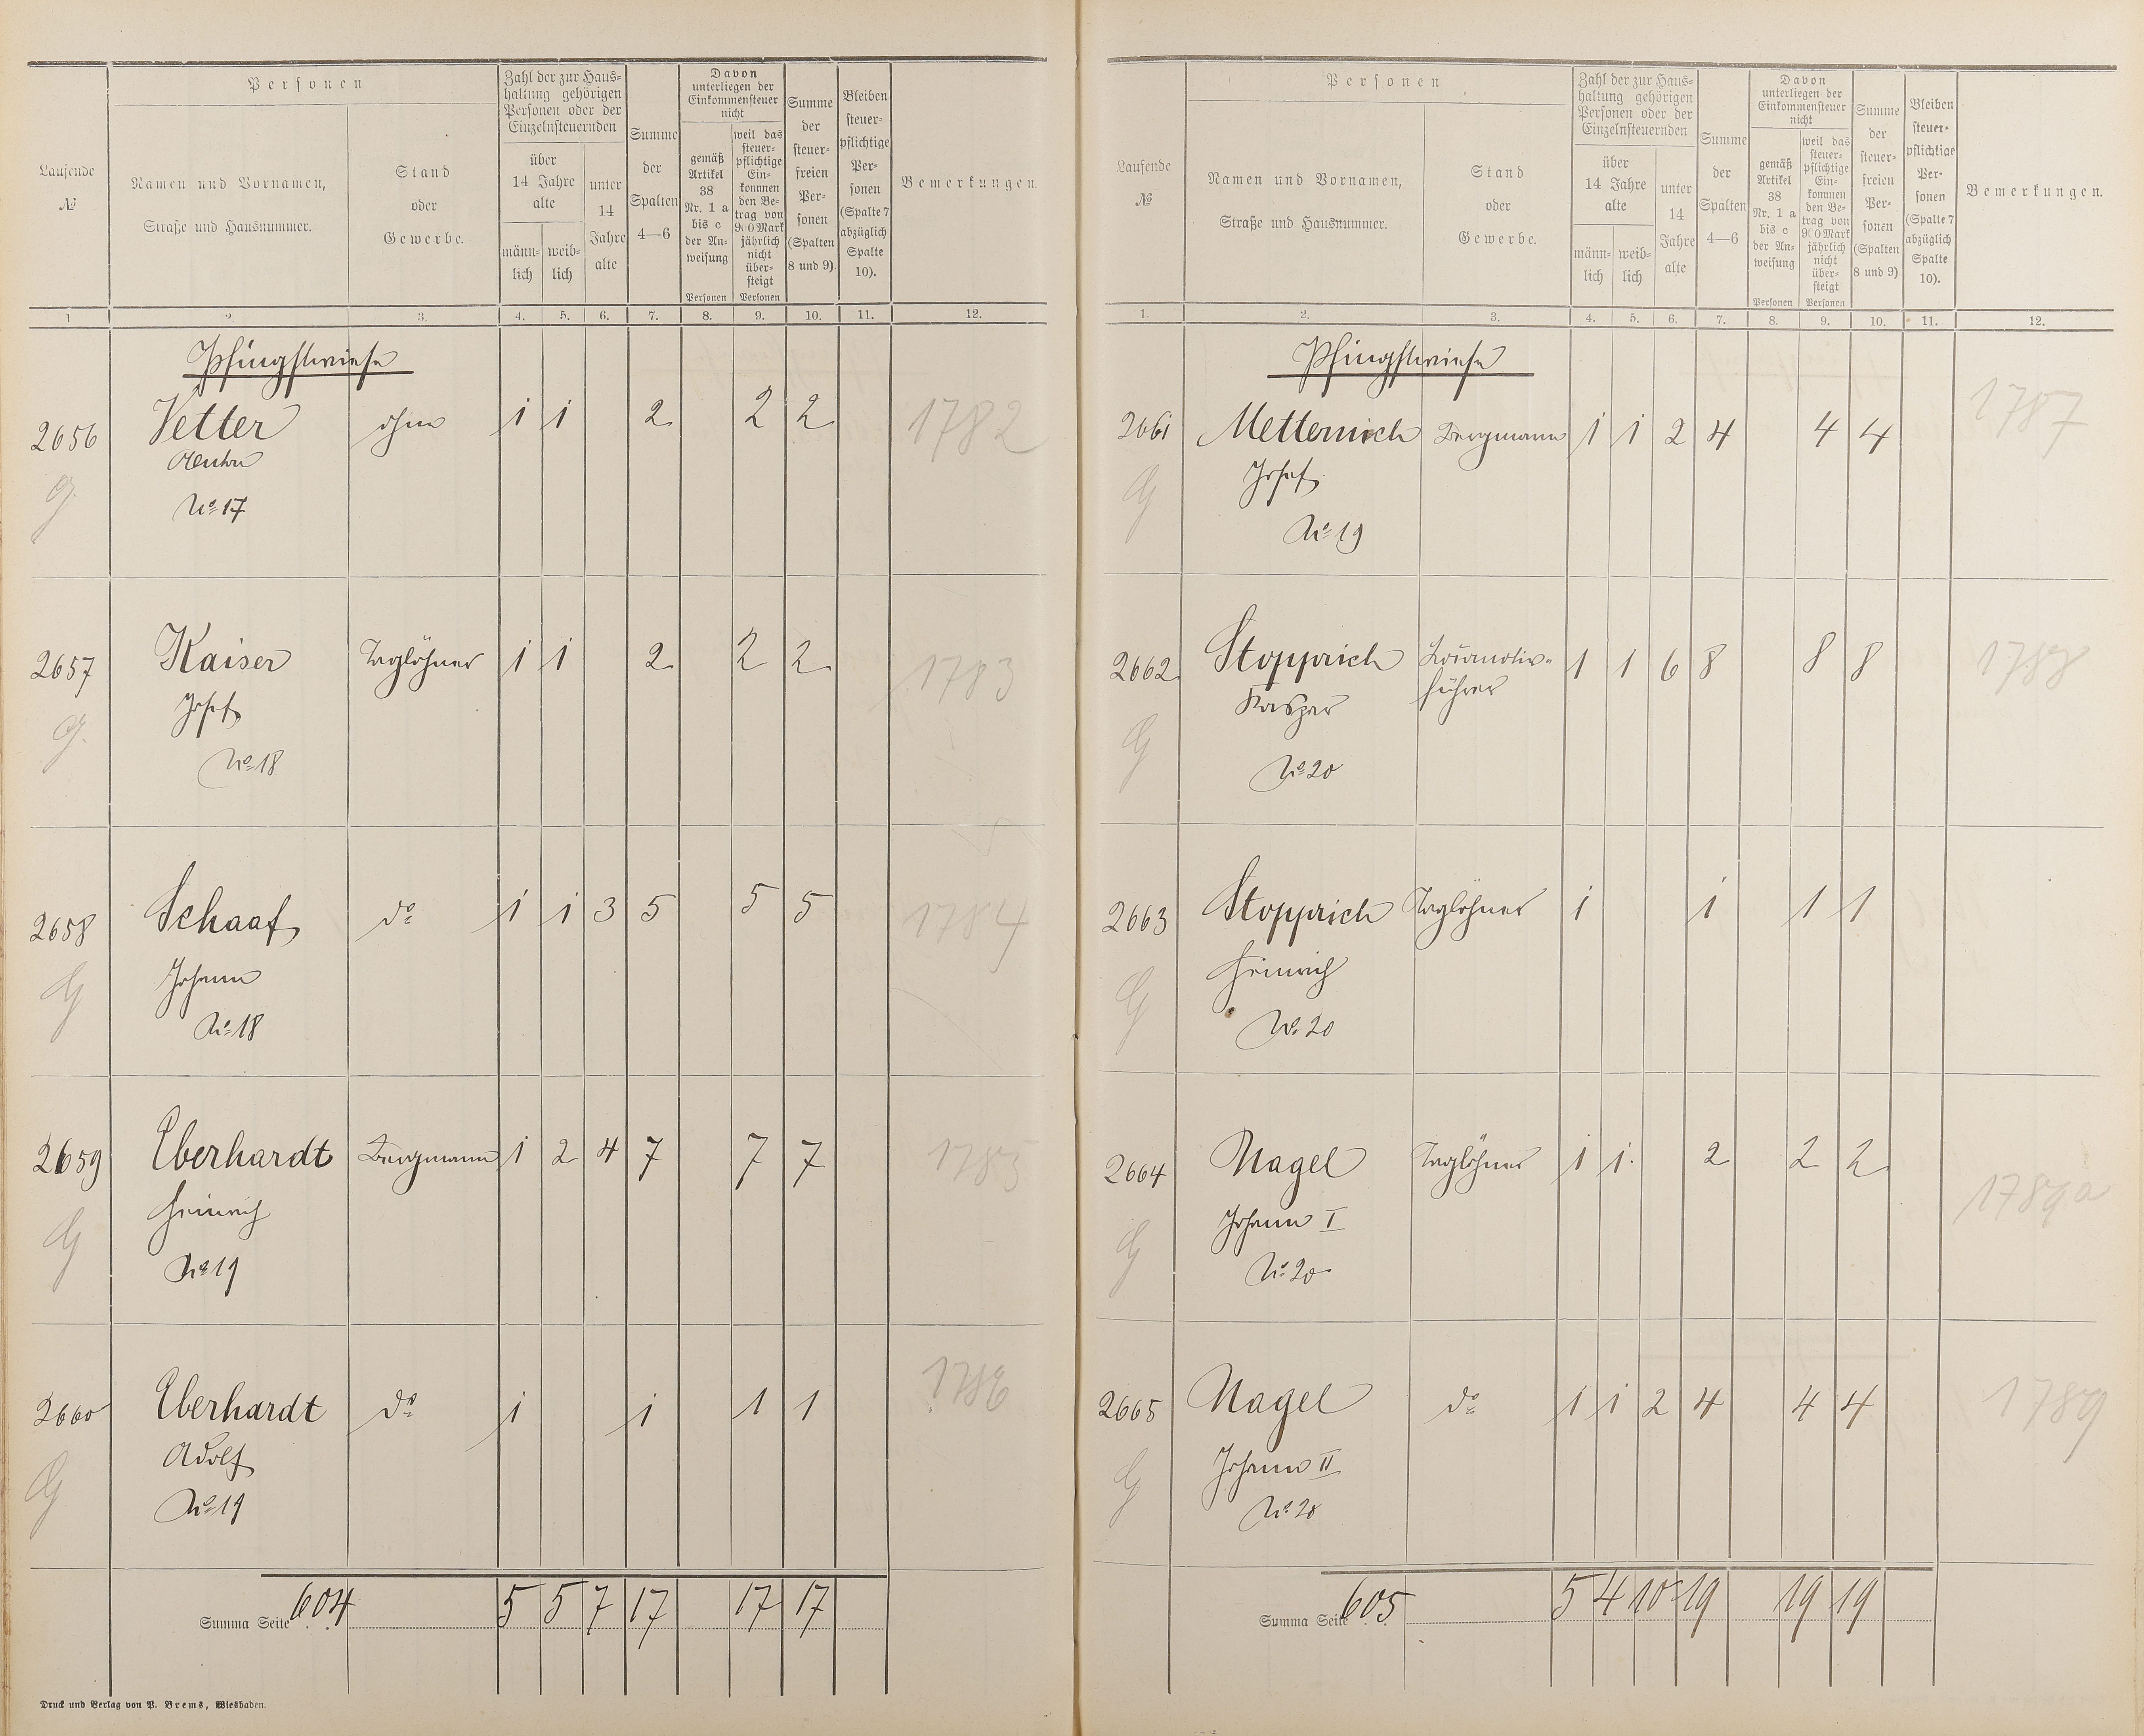 Personen
Zahl der zur Haus-
haltung gehörigen
Personen oder der
Einzelnsteuernden
Davon
unterliegen der
Einkommensteuer
nicht
Laufende
№
Namen und Vornamen,
Straße und Hausnummer.
Stand
oder
Gewerbe.
über
14 Jahre
alte
männ-
lich
weib-
lich
unter
14
Jahre
alte
Summe
der
Spalten
4—6
gemäß
Artikel
38
Nr. 1 a
bis c
der An-
weisung
Personen
weil das
steuer-
pflichtige
Ein-
kommen
den Be-
trag von
900 Mark
jährlich
nicht
über-
steigt
Personen
Summe
der
steuer-
freien
Per-
sonen
(Spalten
8 und 9).
Bleiben
steuer-
pflichtige
Per-
sonen
(Spalte 7
abzüglich
Spalte
10).
Bemerkungen.
1 2. 3. 4. 5. 6. 7. 8. 9. 10. 11. 12.
Pfingstwiese
2656 Vetter ohne 1 1 2 2 2 1782
G.
No 17
2657 Kaiser Taglöhner 1 1 2 2 2 1783
Josef
G.
No 18
2658 Schaaf do 1 1 3 5 5 5 1784
Johann
G
No 18
2659 Eberhardt Bergmann 1 2 4 7 7 7 1785
Heinrich
G
No 19
2660 Eberhardt do 1 1 1 1 1786
Adolf
G
No 19
Summa Seite 604 5 5 7 17 17 17
Druck und Verlag von P. Brems, Wiesbaden.
Personen
Zahl der zur Haus-
haltung gehörigen
Personen oder der
Einzelnsteuernden
Davon
unterliegen der
Einkommensteuer
nicht
Laufende
№
Namen und Vornamen,
Straße und Hausnummer.
Stand
oder
Gewerbe.
über
14 Jahre
alte
männ-
lich
weib-
lich
unter
14
Jahre
alte
Summe
der
Spalten
4—6
gemäß
Artikel
38
Nr. 1 a
bis c
der An-
weisung
Personen
weil das
steuer-
pflichtige
Ein-
kommen
den Be-
trag von
900 Mark
jährlich
nicht
über-
steigt
Personen
Summe
der
steuer-
freien
Per-
sonen
(Spalten
8 und 9).
Bleiben
steuer-
pflichtige
Per-
sonen
(Spalte 7
abzüglich
Spalte
10).
Bemerkungen.
1. 2. 3. 4. 5. 6. 7. 8. 9. 10. 11. 12.
Pfingstwiese
2661 Metternich Bergmann 1 1 2 4 4 4 1787
Josef
G
No 19
2662 Stopprich Locomotiv-
führer 1 1 6 8 8 8 1788
Kaspar
G
No 20
2663 Stopprich Taglöhner 1 1 1 1
Heinrich
G
No 20
2664 Nagel Taglöhner 1 1. 2 2 2 1789a
Johann I
G
No 20
2665 Nagel do 1 1 2 4 4 4 1789
Johann II
G
No 20
Summa Seite 605 5 4 10 19 19 19